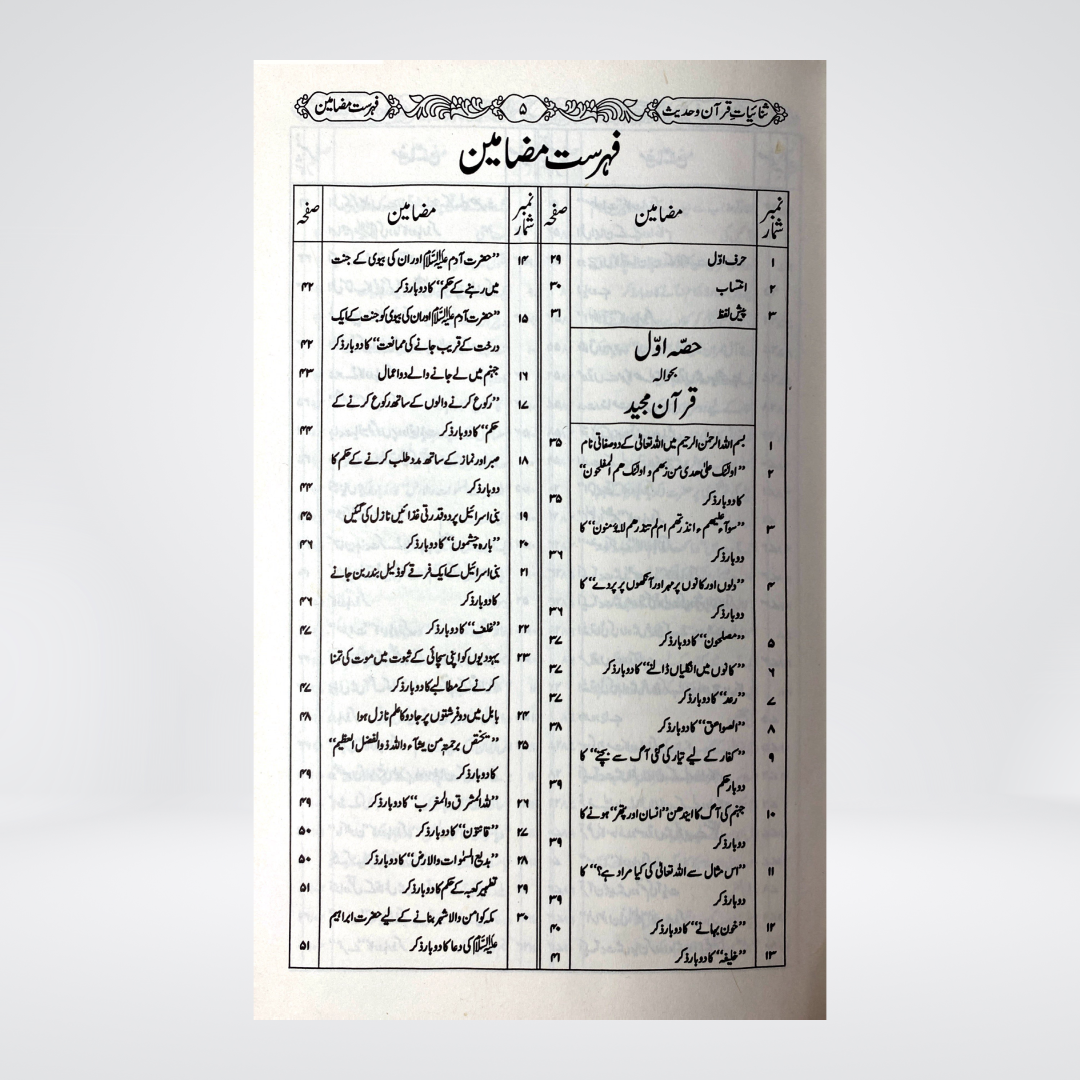 ثنائیات قرآن و حدیث ۵ فہرست مضامین
فہرست مضامین
نمبر شمار مضامین صفحہ
۱ حرف اوّل ۲۹
۲ انتساب ۳۰
۳ پیش لفظ ۳۱
حصّہ اوّل
بحوالہ
قرآن مجید
۱ بسم اللہ الرحمٰن الرحیم میں اللہ تعالیٰ کے دو صفاتی نام ۳۵
۲ ”اولئک علیٰ ھدی من ربھم و اولئک ھم المفلحون“
کا دو بار ذکر ۳۵
۳ ”سوآء علیھم ءانذرتھم ام لم تنذرھم لا یؤمنون“ کا
دو بار ذکر ۳۶
۴ ”دلوں اور کانوں پر مہر اور آنکھوں پر پردے“ کا
دو بار ذکر ۳۶
۵ ”مصلحون“ کا دو بار ذکر ۳۷
۶ ”کانوں میں انگلیاں ڈالنے“ کا دو بار ذکر ۳۷
۷ ”رعد“ کا دو بار ذکر ۳۷
۸ ”الصواعق“ کا دو بار ذکر ۳۸
۹ ”کفار کے لیے تیار کی گئی آگ سے بچنے“ کا
دو بار حکم ۳۹
۱۰ جہنم کی آگ کا ایندھن ”انسان اور پتھر“ ہونے کا
دو بار ذکر ۳۹
۱۱ ”اس مثال سے اللہ تعالیٰ کی کیا مراد ہے؟“ کا
دو بار ذکر ۳۹
۱۲ ”خون بہانے“ کا دو بار ذکر ۴۰
۱۳ ”خلیفہ“ کا دو بار ذکر ۴۱
نمبر شمار مضامین صفحہ
۱۴ ”حضرت آدم علیہ السلام اور ان کی بیوی کے جنت
میں رہنے کے حکم“ کا دو بار ذکر ۴۲
۱۵ ”حضرت آدم علیہ السلام اور ان کی بیوی کو جنت کے ایک
درخت کے قریب جانے کی ممانعت“ کا دو بار ذکر ۴۲
۱۶ جہنم میں لے جانے والے دو اعمال ۴۳
۱۷ ”رکوع کرنے والوں کے ساتھ رکوع کرنے کے
حکم“ کا دو بار ذکر ۴۴
۱۸ صبر اور نماز کے ساتھ مدد طلب کرنے کے حکم کا
دو بار ذکر ۴۴
۱۹ بنی اسرائیل پر دو قدرتی غذائیں نازل کی گئیں ۴۵
۲۰ ”بارہ چشموں“ کا دو بار ذکر ۴۶
۲۱ بنی اسرائیل کے ایک فرقے کو ذلیل بندر بن جانے
کا دو بار ذکر ۴۶
۲۲ ”غلف“ کا دو بار ذکر ۴۷
۲۳ یہودیوں کو اپنی سچائی کے ثبوت میں موت کی تمنا
کرنے کے مطالبے کا دو بار ذکر ۴۷
۲۴ بابل میں دو فرشتوں پر جادو کا علم نازل ہوا ۴۸
۲۵ ”یختص برحمتہ من یشآء واللہ ذوالفضل العظیم“
کا دو بار ذکر ۴۹
۲۶ ”للہ المشرق والمغرب“ کا دو بار ذکر ۴۹
۲۷ ”قانتون“ کا دو بار ذکر ۵۰
۲۸ ”بدیع السمٰوات والارض“ کا دو بار ذکر ۵۰
۲۹ تطہیر کعبہ کے حکم کا دو بار ذکر ۵۱
۳۰ مکہ کو امن والا شہر بنانے کے لیے حضرت ابراہیم
علیہ السلام کی دعا کا دو بار ذکر ۵۱